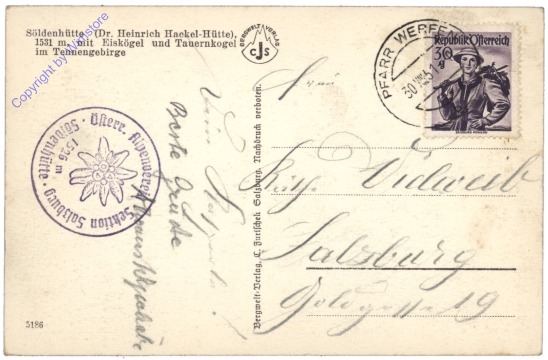 Söldenhütte, (Dr. Heinrich Hackel-Hütte),
1531 m, mit Eiskögel und Tauernkogel
im Tennengebirge
BERGWELT VERLAG
CJS
Copyright by ankstore
PFARR WERFEN
30.VIII.51
Republik Österreich
30 g
Österr. Alpenverein Sektion Salzburg · Söldenhütte ·
1526 m
Vom
Beste Grüße
Bergwelt-Verlag, C. Jurischek Salzburg. Nachdruck verboten.
Frl.
Käthe
Salzburg
Goldgasse 19
5186